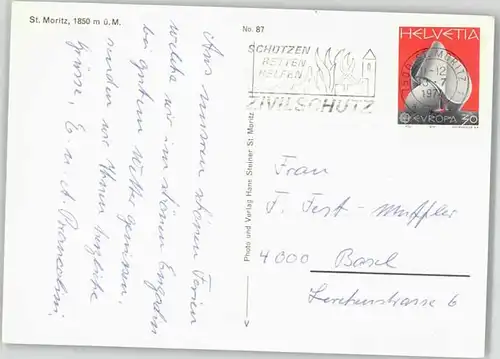 St. Moritz, 1850 m ü. M.
No. 87
Aus unseren schönen Ferien
welche wir im schönen Engadin
bei gutem Wetter geniessen,
senden wir Ihnen herzliche
Grüsse, E. u. A. Brancolini
Photo und Verlag Hans Steiner St. Moritz
SCHÜTZEN
RETTEN
HELFEN
ZIVILSCHUTZ
HELVETIA
ST. MORITZ
12
EVROPA 30
Frau
F. Test-Muffler
4000 Basel
Lerchenstrasse 6